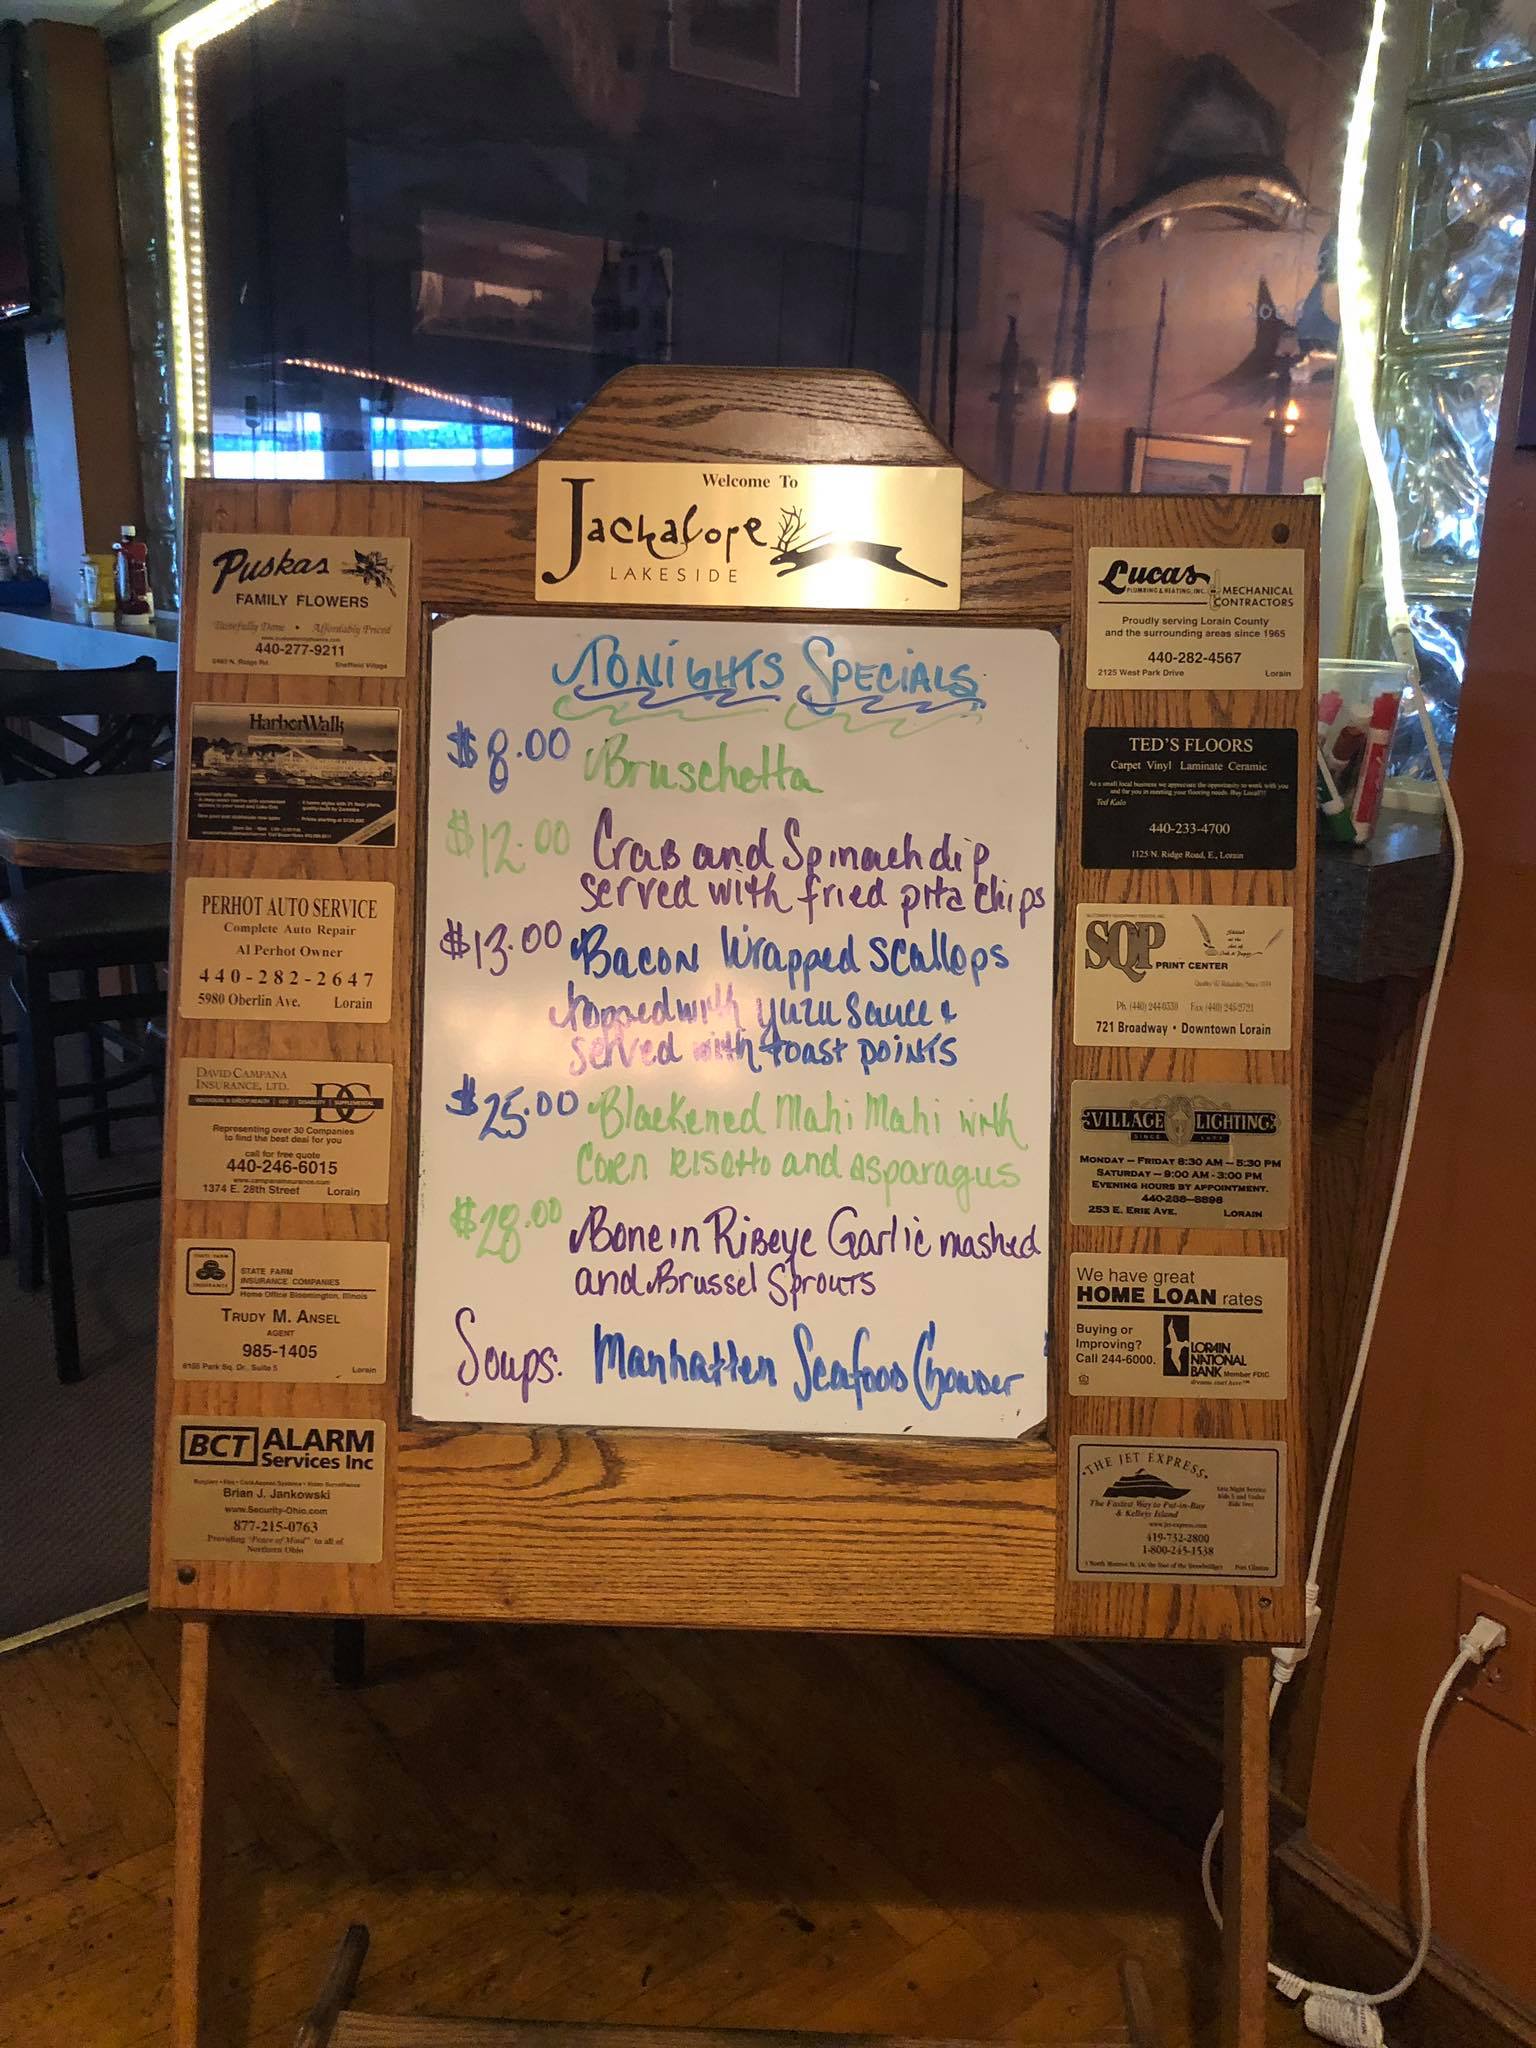 Welcome To
Jackalope
LAKESIDE
TONIGHTS SPECIALS
$8.00 Bruschetta
$12.00 Crab and Spinach dip
served with fried pita chips
$13.00 Bacon Wrapped scallops
topped with yuzu sauce &
served with toast points
$25.00 Blackened Mahi Mahi with
corn risotto and asparagus
$28.00 Bone in Ribeye Garlic mashed
and Brussel Sprouts
Soups: Manhatten Seafood Chowder
Puskas
FAMILY FLOWERS
Tastefully Done • Affordably Priced
440-277-9211
Sheffield Village
HarborWalk
PERHOT AUTO SERVICE
Complete Auto Repair
Al Perhot Owner
440-282-2647
5980 Oberlin Ave. Lorain
DAVID CAMPANA
INSURANCE, LTD.
DC
Representing over 30 Companies
to find the best deal for you
call for free quote
440-246-6015
www.campanainsurance.com
1374 E. 28th Street Lorain
STATE FARM
INSURANCE
STATE FARM
INSURANCE COMPANIES
Home Office Bloomington, Illinois
TRUDY M. ANSEL
AGENT
985-1405
Park Sq. Dr., Suite 5 Lorain
BCT ALARM
Services Inc
Brian J. Jankowski
www.Security-Ohio.com
877-215-0763
Providing "Peace of Mind" to all of
Northern Ohio
Lucas
PLUMBING & HEATING, INC.
MECHANICAL
CONTRACTORS
Proudly serving Lorain County
and the surrounding areas since 1965
440-282-4567
2125 West Park Drive Lorain
TED'S FLOORS
Carpet Vinyl Laminate Ceramic
As a small local business we appreciate the opportunity to work with you
and for you in meeting your flooring needs. Buy Local!!!
Ted Kalo
440-233-4700
1125 N. Ridge Road, E., Lorain
SQP
PRINT CENTER
721 Broadway • Downtown Lorain
VILLAGE LIGHTING
SINCE
MONDAY – FRIDAY 8:30 AM – 5:30 PM
SATURDAY – 9:00 AM - 3:00 PM
EVENING HOURS BY APPOINTMENT.
440-288-8898
253 E. ERIE AVE. LORAIN
We have great
HOME LOAN rates
Buying or
Improving?
Call 244-6000.
LORAIN
NATIONAL
BANK Member FDIC
THE JET EXPRESS
The Fastest Way to Put-in-Bay
& Kelleys Island
www.jet-express.com
419-732-2800
1-800-245-1538
Port Clinton